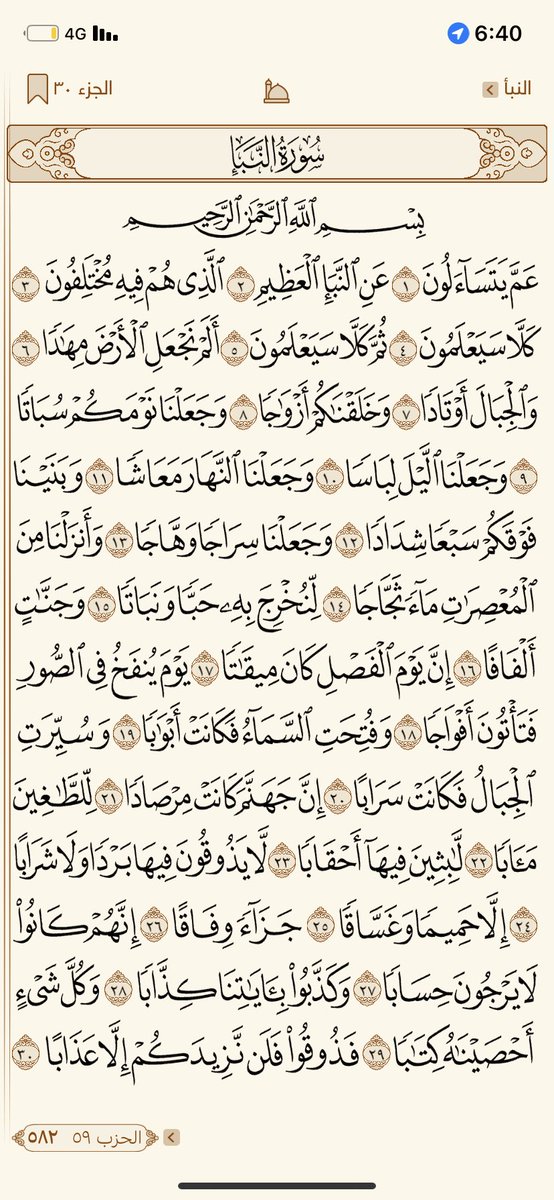 4G 6:40
النبأ الجزء ٣٠
سُورَةُ النَّبَإِ
بِسْمِ ٱللَّهِ ٱلرَّحْمَٰنِ ٱلرَّحِيمِ
عَمَّ يَتَسَآءَلُونَ ١ عَنِ ٱلنَّبَإِ ٱلْعَظِيمِ ٢ ٱلَّذِى هُمْ فِيهِ مُخْتَلِفُونَ ٣
كَلَّا سَيَعْلَمُونَ ٤ ثُمَّ كَلَّا سَيَعْلَمُونَ ٥ أَلَمْ نَجْعَلِ ٱلْأَرْضَ مِهَٰدًا ٦
وَٱلْجِبَالَ أَوْتَادًا ٧ وَخَلَقْنَٰكُمْ أَزْوَٰجًا ٨ وَجَعَلْنَا نَوْمَكُمْ سُبَاتًا
٩ وَجَعَلْنَا ٱلَّيْلَ لِبَاسًا ١٠ وَجَعَلْنَا ٱلنَّهَارَ مَعَاشًا ١١ وَبَنَيْنَا
فَوْقَكُمْ سَبْعًا شِدَادًا ١٢ وَجَعَلْنَا سِرَاجًا وَهَّاجًا ١٣ وَأَنزَلْنَا مِنَ
ٱلْمُعْصِرَٰتِ مَآءً ثَجَّاجًا ١٤ لِّنُخْرِجَ بِهِۦ حَبًّا وَنَبَاتًا ١٥ وَجَنَّٰتٍ
أَلْفَافًا ١٦ إِنَّ يَوْمَ ٱلْفَصْلِ كَانَ مِيقَٰتًا ١٧ يَوْمَ يُنفَخُ فِى ٱلصُّورِ
فَتَأْتُونَ أَفْوَاجًا ١٨ وَفُتِحَتِ ٱلسَّمَآءُ فَكَانَتْ أَبْوَٰبًا ١٩ وَسُيِّرَتِ
ٱلْجِبَالُ فَكَانَتْ سَرَابًا ٢٠ إِنَّ جَهَنَّمَ كَانَتْ مِرْصَادًا ٢١ لِّلطَّٰغِينَ
مَـَٔابًا ٢٢ لَّٰبِثِينَ فِيهَآ أَحْقَابًا ٢٣ لَّا يَذُوقُونَ فِيهَا بَرْدًا وَلَا شَرَابًا
٢٤ إِلَّا حَمِيمًا وَغَسَّاقًا ٢٥ جَزَآءً وِفَاقًا ٢٦ إِنَّهُمْ كَانُوا۟
لَا يَرْجُونَ حِسَابًا ٢٧ وَكَذَّبُوا۟ بِـَٔايَٰتِنَا كِذَّابًا ٢٨ وَكُلَّ شَىْءٍ
أَحْصَيْنَٰهُ كِتَٰبًا ٢٩ فَذُوقُوا۟ فَلَن نَّزِيدَكُمْ إِلَّا عَذَابًا ٣٠
الحزب ٥٩ ٥٨٢